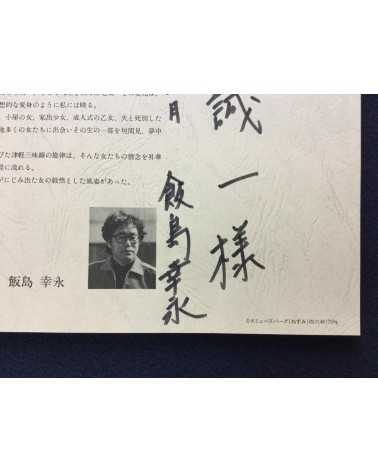 想的な変身のように私には映る。
小屋の女、家出少女、成人式の乙女、夫と死別した
多くの女たちに出会いその生の一部を垣間見、夢中
びた津軽三味線の旋律は、そんな女たちの情念を昇華
に流れる。
にじみ出た女の毅然とした風姿があった。
飯島 幸永
誠一様
月
飯島幸永